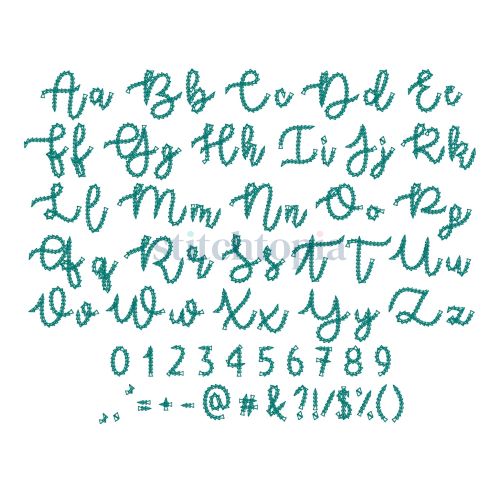 Aa Bb Cc Dd Ee
Ff Gg Hh Ii Jj Kk
Ll Mm Nn Oo Pp
Qq Rr Ss Tt Uu
stitchtopia
Vv Ww Xx Yy Zz
0 1 2 3 4 5 6 7 8 9
, . : = + - - @ # & ? ! / $ % ( )